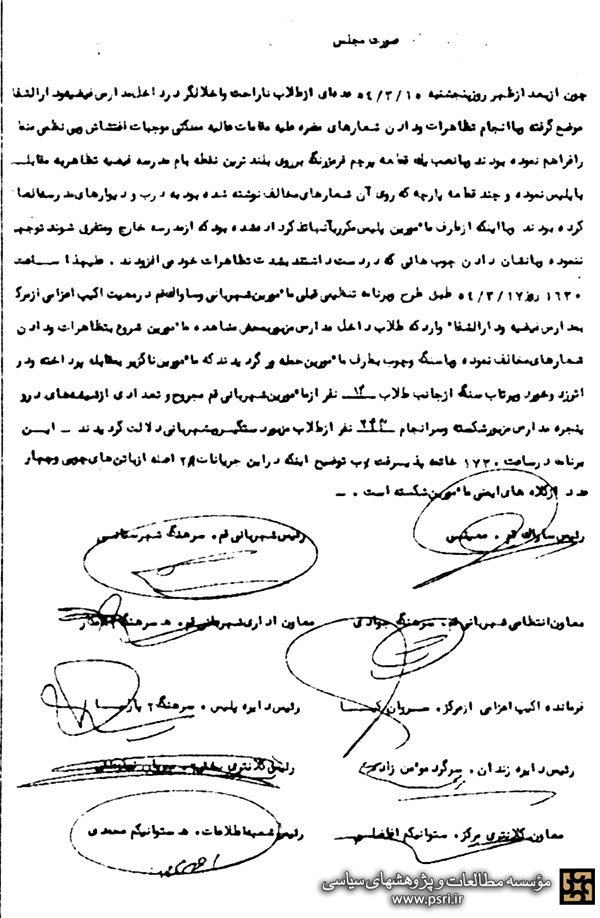 صورت مجلس
چون ازبعد ازظهر روزپنجشنبه ۵٤/۳/۱۵ عده‌ای ازطلاب ناراحت واخلالگر درد اخل مدارس فیضیه ود ارالشفا
موضع گرفته وباانجام تظاهرات ود ادن شعارهای مضره علیه مقامات عالیه مملکتی موجبات اغتشاش وبی نظمی
رافراهم نموده بود ند وبانصب یك قطعه پرچم قرمزرنگ برروی بلند ترین نقطه بام مدرسه فیضیه تظاهربه مقابلـــه
باپلیس نموده و چند قطعه پارچه که روی آن شعارهای مخالف نوشته شده بود به درب و دیوارهای مدرسه
کرده بود ند وبااینکه ازطرف مأمورین پلیس مکرربآنهاتذکرداده شده بود که ازمدرسه خارج ومتفرق شوند توجهی
ننموده وبانشان دادن چوب هائی که دردست داشتند بشدت تظاهرات خود می افزودند . علیهذا ســـاعت
۱٦۳۰ روز ۵٤/۳/۱۷ طبق طرح وبرنامه تنظیمی قبلی مأمورین شهربانی وساواك قم درمعیت اکیپ اعزامی ازمرکز
بمدارس فیضیه ود ارالشفاء واردکه طلاب داخل مدارس مزبوربمحض مشاهده مأمورین شروع بتظاهرات ود ادن
شعارهای مخالف نموده وباسنگ وچوب بطرف مأمورین حمله ور گردیدند که مأمورین ناگزیر بمقابله پرداخته ودر
اثرزد وخورد وپرتاب سنگ ازجانب طلاب نفر ازمأمورین شهربانی قم مجروح و تعدادی ازشیشه‌های درو
پنجره مدارس مزبورشکسته وسرانجام نفر ازطلاب مزبورد ستگیروبشهربانی دلالت گردیدند ــ ایـــن
برنامه درساعت ۱۷۳۰ خاتمه پذیرفت توضیح اینکه دراین جریانات ۲۸ اصله ازباتن های چوبی وچهار
عدد ازکلاه های ایمنی مأمورین شکسته است . ــ
رئیس ساواك قم . معینی رئیس شهربانی قم . سرهنگ شهرستانـــی
معاون انتظامی شهربانی قم . سرهنگ جوادی معاون اداری شهربانی قم .
فرمانده اکیپ اعزامی ازمرکز . ســـروان کیـــا رئیس دایره پلیس . سرهنگ ۲ پارســـا
رئیس دایره زندان . سرگرد مؤمن زاده رئیس کلانتری
معاون کلانتری مرکز . ستوانیکم رئیس شعبه اطلاعات . ستوانیکم محمدی
مؤسسه مطالعات و پژوهشهای سیاسی
www.psri.ir